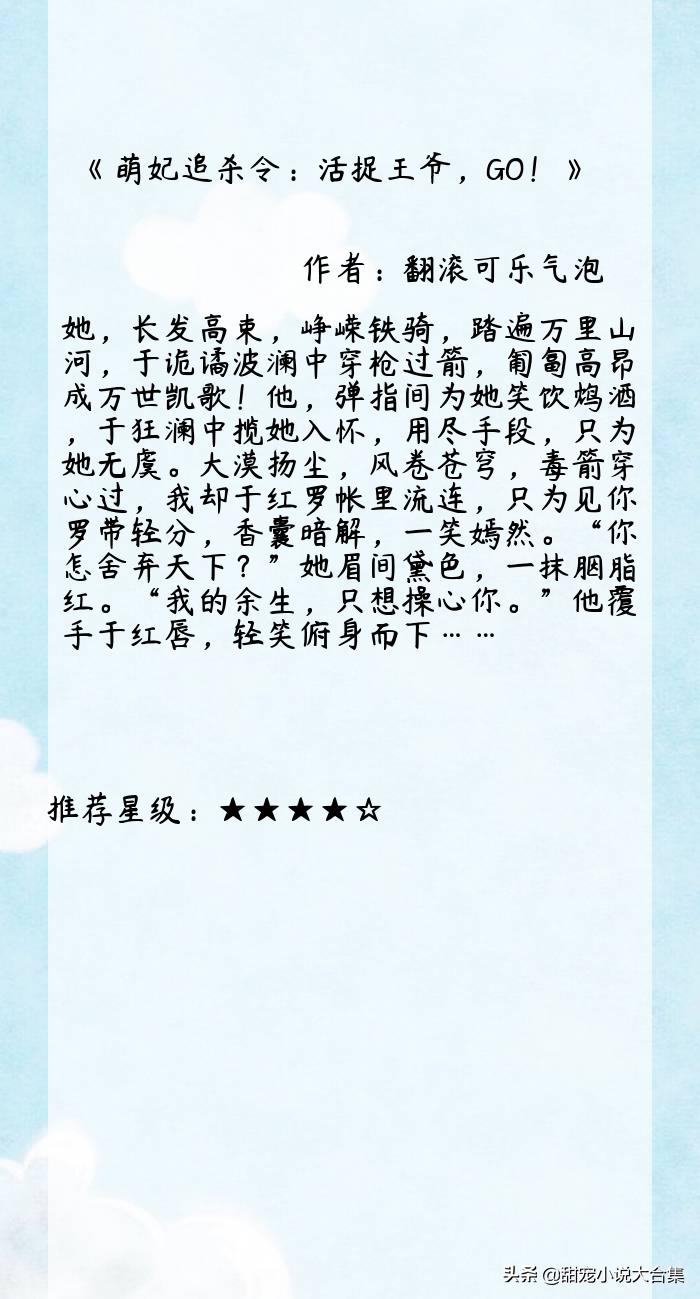 《萌妃追杀令：活捉王爷，GO！》
作者：翻滚可乐气泡
她，长发高束，峥嵘铁骑，踏遍万里山
河，于诡谲波澜中穿枪过箭，匍匐高昂
成万世凯歌！他，弹指间为她笑饮鸩酒
，于狂澜中揽她入怀，用尽手段，只为
她无虞。大漠扬尘，风卷苍穹，毒箭穿
心过，我却于红罗帐里流连，只为见你
罗带轻分，香囊暗解，一笑嫣然。“你
怎舍弃天下？”她眉间黛色，一抹胭脂
红。“我的余生，只想操心你。”他覆
手于红唇，轻笑俯身而下……
推荐星级：★★★★☆
头条 @甜宠小说大合集